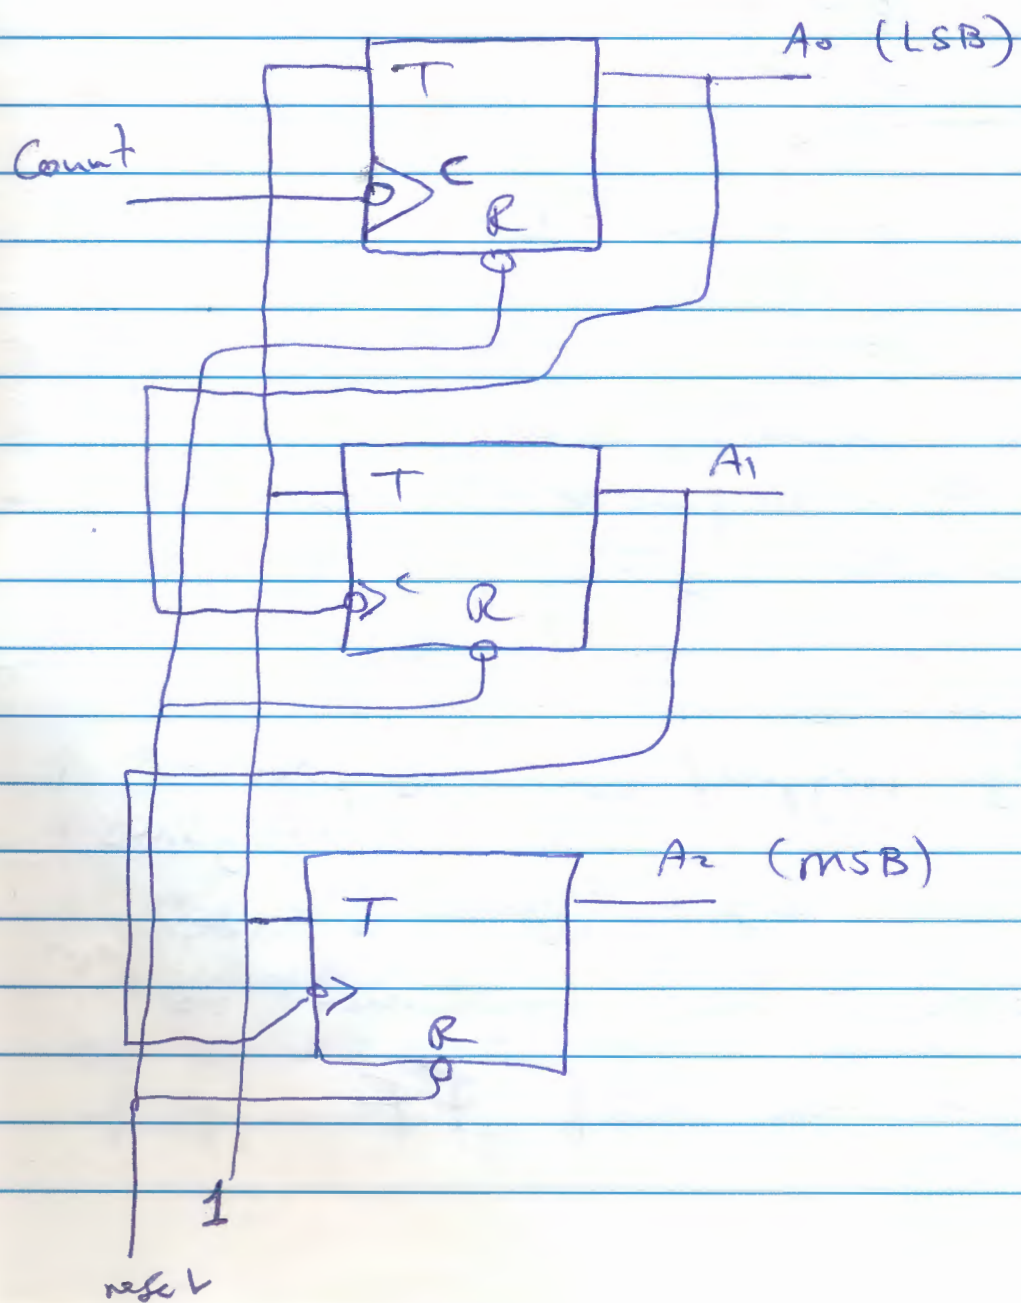 A₀ (LSB)
T
Count
C
R
A₁
T
C
R
A₂ (MSB)
T
R
1
reset